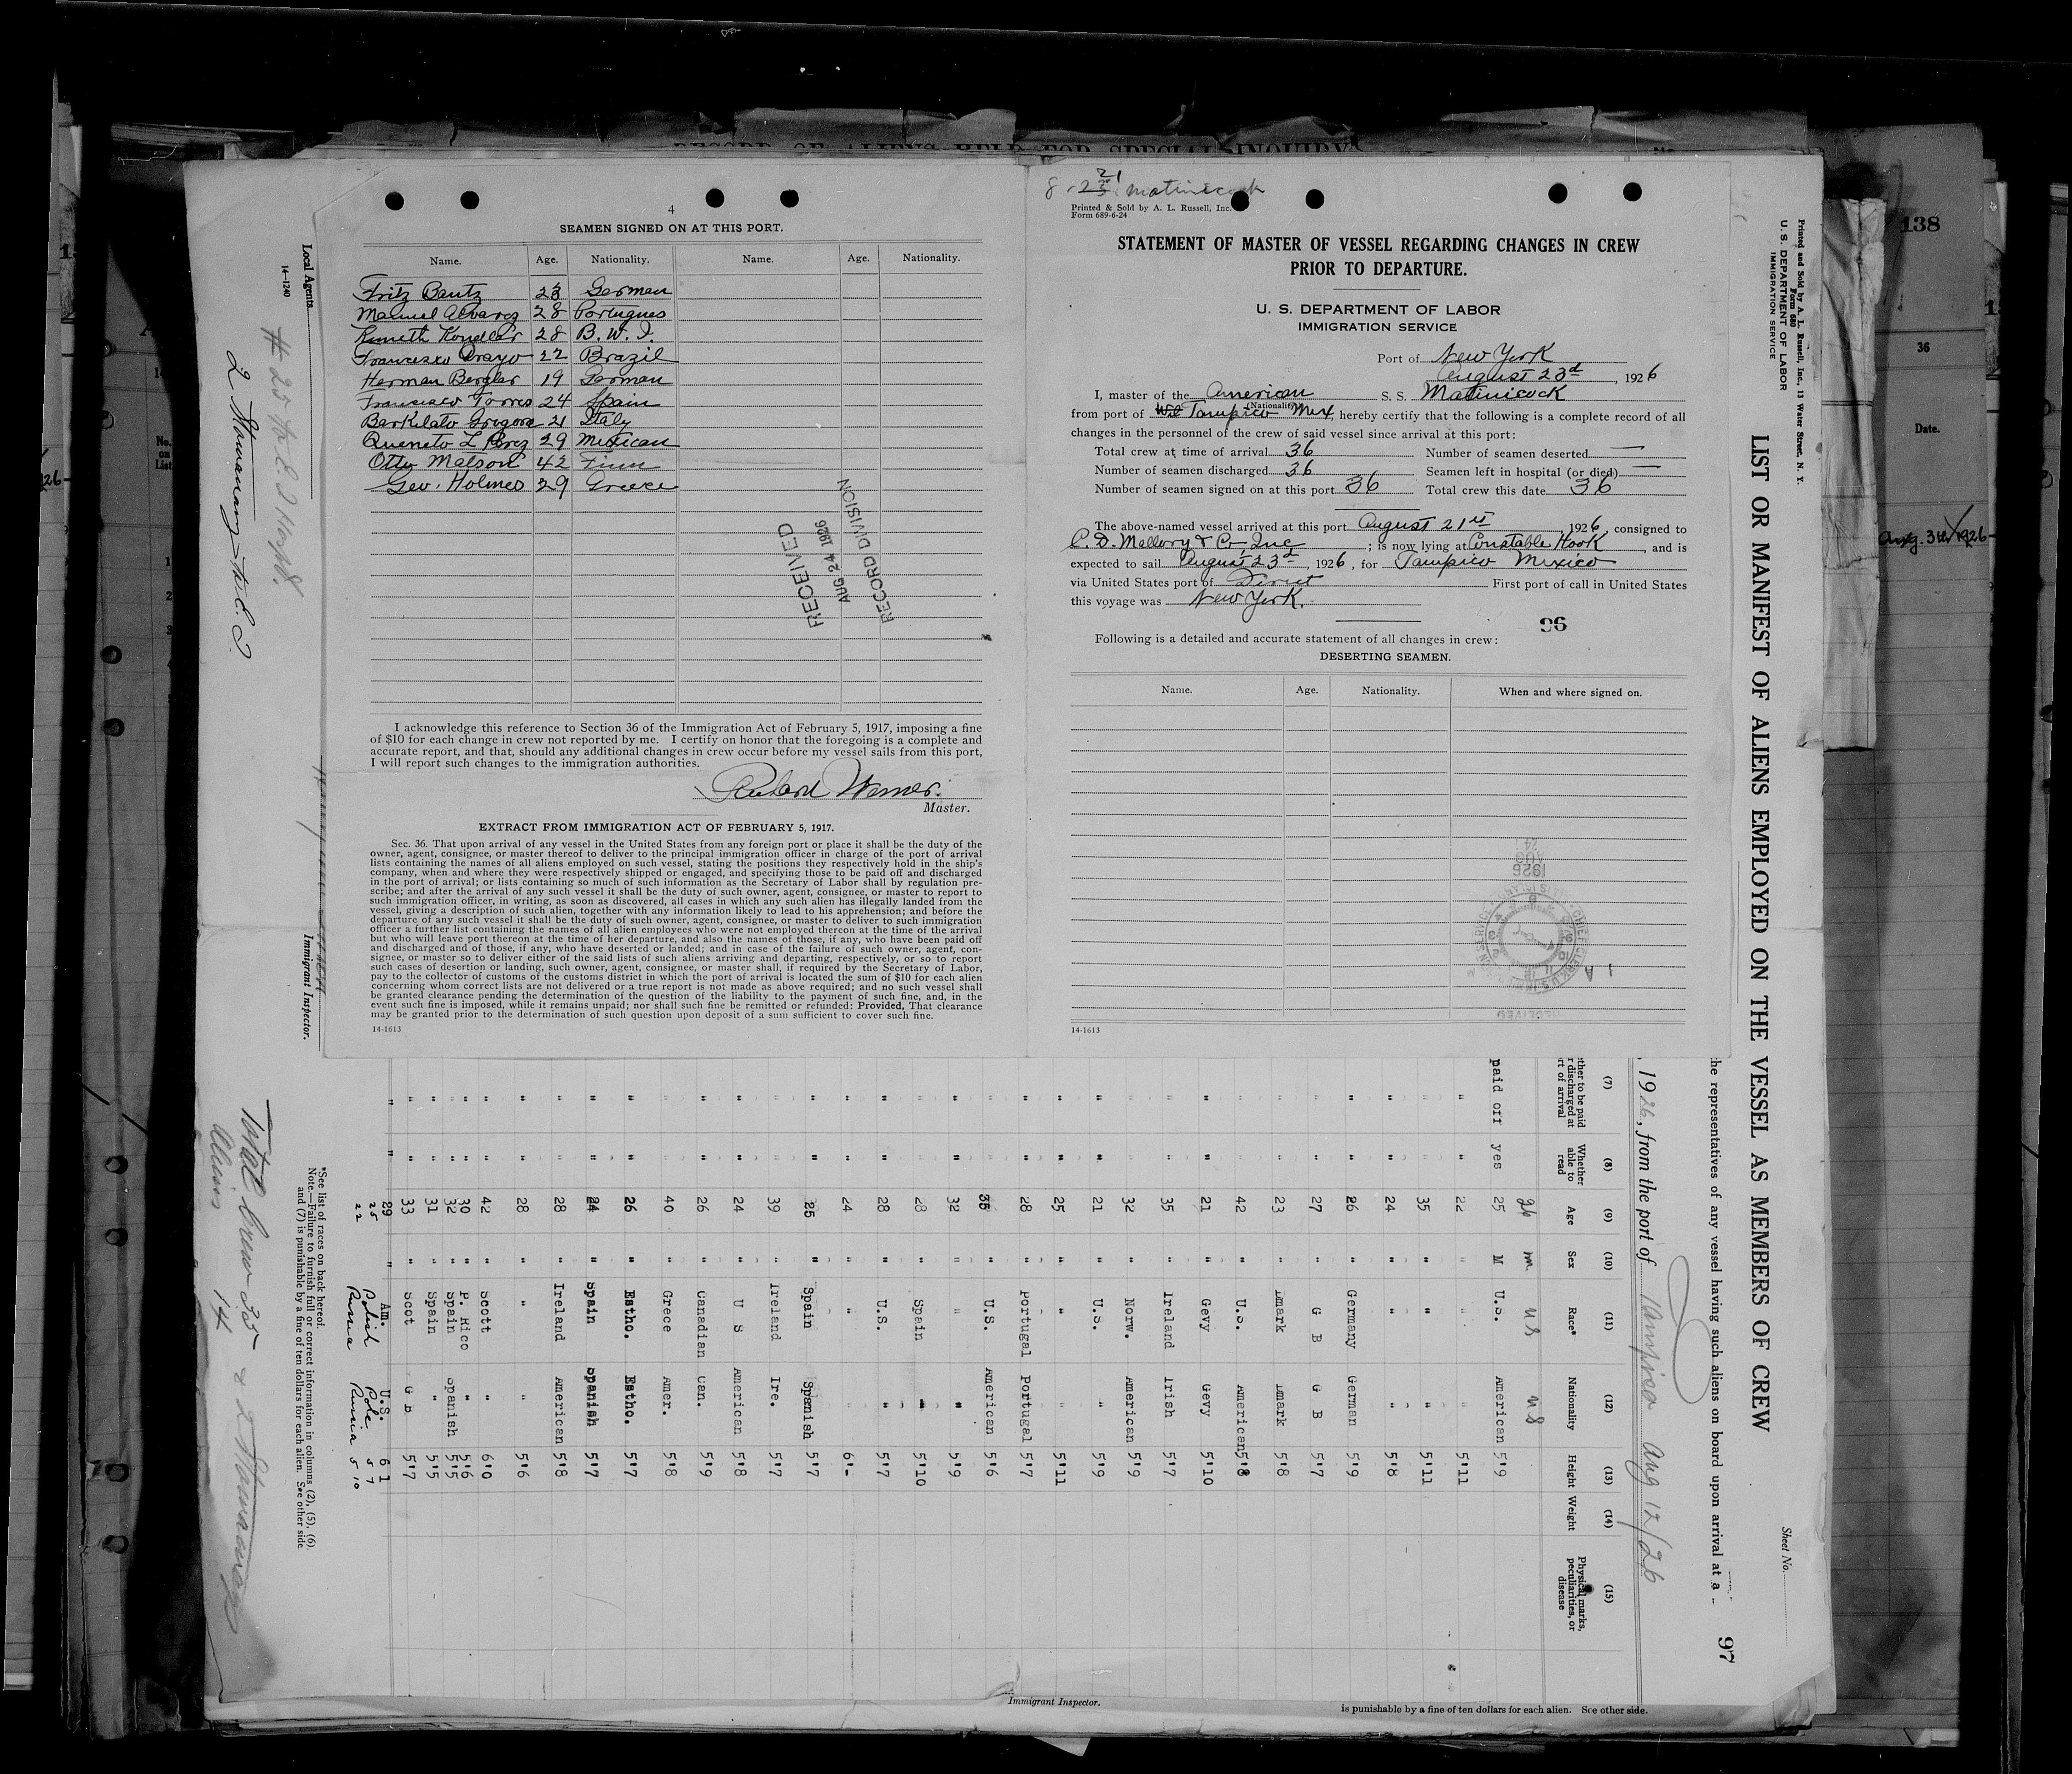 RECORD OF ALIENS HELD FOR SPECIAL INQUIRY
4
SEAMEN SIGNED ON AT THIS PORT.
Name. Age. Nationality. Name. Age. Nationality.
Fritz Bantz 23 German
Manuel Alvarez 28 Portugues
Kenneth 28 B. W. I.
Francisco 22 Brazil
Herman Bergler 19 German
Francisco Torres 24 Spain
21 Italy
L Perez 29 Mexican
Otto Matson 42 Finn
Geo. Holmes 29 Greece
RECEIVED
AUG 24 1926
RECORD DIVISION
I acknowledge this reference to Section 36 of the Immigration Act of February 5, 1917, imposing a fine
of $10 for each change in crew not reported by me. I certify on honor that the foregoing is a complete and
accurate report, and that, should any additional changes in crew occur before my vessel sails from this port,
I will report such changes to the immigration authorities.
Werner.
Master.
EXTRACT FROM IMMIGRATION ACT OF FEBRUARY 5, 1917.
Sec. 36. That upon arrival of any vessel in the United States from any foreign port or place it shall be the duty of the
owner, agent, consignee, or master thereof to deliver to the principal immigration officer in charge of the port of arrival
lists containing the names of all aliens employed on such vessel, stating the positions they respectively hold in the ship's
company, when and where they were respectively shipped or engaged, and specifying those to be paid off and discharged
in the port of arrival; or lists containing so much of such information as the Secretary of Labor shall by regulation pre-
scribe; and after the arrival of any such vessel it shall be the duty of such owner, agent, consignee, or master to report to
such immigration officer, in writing, as soon as discovered, all cases in which any such alien has illegally landed from the
vessel, giving a description of such alien, together with any information likely to lead to his apprehension; and before the
departure of any such vessel it shall be the duty of such owner, agent, consignee, or master to deliver to such immigration
officer a further list containing the names of all alien employees who were not employed thereon at the time of the arrival
but who will leave port thereon at the time of her departure, and also the names of those, if any, who have been paid off
and discharged and of those, if any, who have deserted or landed; and in case of the failure of such owner, agent, con-
signee, or master so to deliver either of the said lists of such aliens arriving and departing, respectively, or so to report
such cases of desertion or landing, such owner, agent, consignee, or master shall, if required by the Secretary of Labor,
pay to the collector of customs of the customs district in which the port of arrival is located the sum of $10 for each alien
concerning whom correct lists are not delivered or a true report is not made as above required; and no such vessel shall
be granted clearance pending the determination of the question of the liability to the payment of such fine, and, in the
event such fine is imposed, while it remains unpaid; nor shall such fine be remitted or refunded: Provided, That clearance
may be granted prior to the determination of such question upon deposit of a sum sufficient to cover such fine.
14-1613
8-23 21 Matinicock
Printed & Sold by A. L. Russell, Inc.
Form 689-6-24
STATEMENT OF MASTER OF VESSEL REGARDING CHANGES IN CREW
PRIOR TO DEPARTURE.
U. S. DEPARTMENT OF LABOR
IMMIGRATION SERVICE
Port of New York
August 23d, 1926
I, master of the American S. S. Matinicock
(Nationality)
from port of Tampico Mex, hereby certify that the following is a complete record of all
changes in the personnel of the crew of said vessel since arrival at this port:
Total crew at time of arrival 36 Number of seamen deserted —
Number of seamen discharged 36 Seamen left in hospital (or died) —
Number of seamen signed on at this port 36 Total crew this date 36
The above-named vessel arrived at this port August 21st, 1926, consigned to
C. D. Mallory & Co, Inc; is now lying at Constable Hook, and is
expected to sail August 23d, 1926, for Tampico Mexico
via United States port of Direct First port of call in United States
this voyage was New York.
96
Following is a detailed and accurate statement of all changes in crew:
DESERTING SEAMEN.
Name. Age. Nationality. When and where signed on.
1926
AUG
24
RECEIVED
14-1613
Printed and Sold by A. L. Russell, Inc., 13 Water Street, N. Y.
Form 680
U. S. DEPARTMENT OF LABOR
IMMIGRATION SERVICE
Sheet No.
LIST OR MANIFEST OF ALIENS EMPLOYED ON THE VESSEL AS MEMBERS OF CREW
97
the representatives of any vessel having such aliens on board upon arrival at a
, 1926, from the port of Tampico Aug 12/26
(7) (8) (9) (10) (11) (12) (13) (14) (15)
Whether able to read Age Sex Race* Nationality Height Weight Physical marks, peculiarities, or disease
26 m US US
paid off yes 25 M U.S. American 5'9
" " 22 " " " 5'11
35 " " 5'11
24 " " 5'8
26 Germany German 5'9
27 G B G B 5'7
23 5'8
42 U.S. American 5'8
21 Gevy Gevy 5'10
35 Ireland Irish 5'7
32 Norw. American 5'9
21 U.S. " 5'9
25 " " 5'11
28 Portugal Portugal 5'7
35 U.S. American 5'6
32 " " 5'9
28 Spain " 5'10
28 U.S. " 5'7
24 " " 6'-
25 Spain Spanish 5'7
39 Ireland Ire. 5'7
24 U S American 5'8
26 Canadian Can. 5'9
40 Grece Amer. 5'8
26 Estho. Estho. 5'7
24 Spain Spanish 5'7
28 Ireland American 5'8
28 " " 5'6
42 Scott " 6'0
30 P. Rico " 5'6
32 Spain Spanish 5'5
31 Spain " 5'5
33 Scot G B 5'7
29 Am. U.S. 6 1
25 Polish Pole 5 7
22 Russia Russia 5 10
*See list of races on back hereof.
Note.—Failure to furnish full or correct information in columns (2), (5), (6),
and (7) is punishable by a fine of ten dollars for each alien. See other side.
Local Agents
14-1240
Immigrant Inspector.
Total Crew 35 & 2 Stowaways
Aliens 14
Immigrant Inspector.
is punishable by a fine of ten dollars for each alien. See other side.
138
36
Date.
No. on List